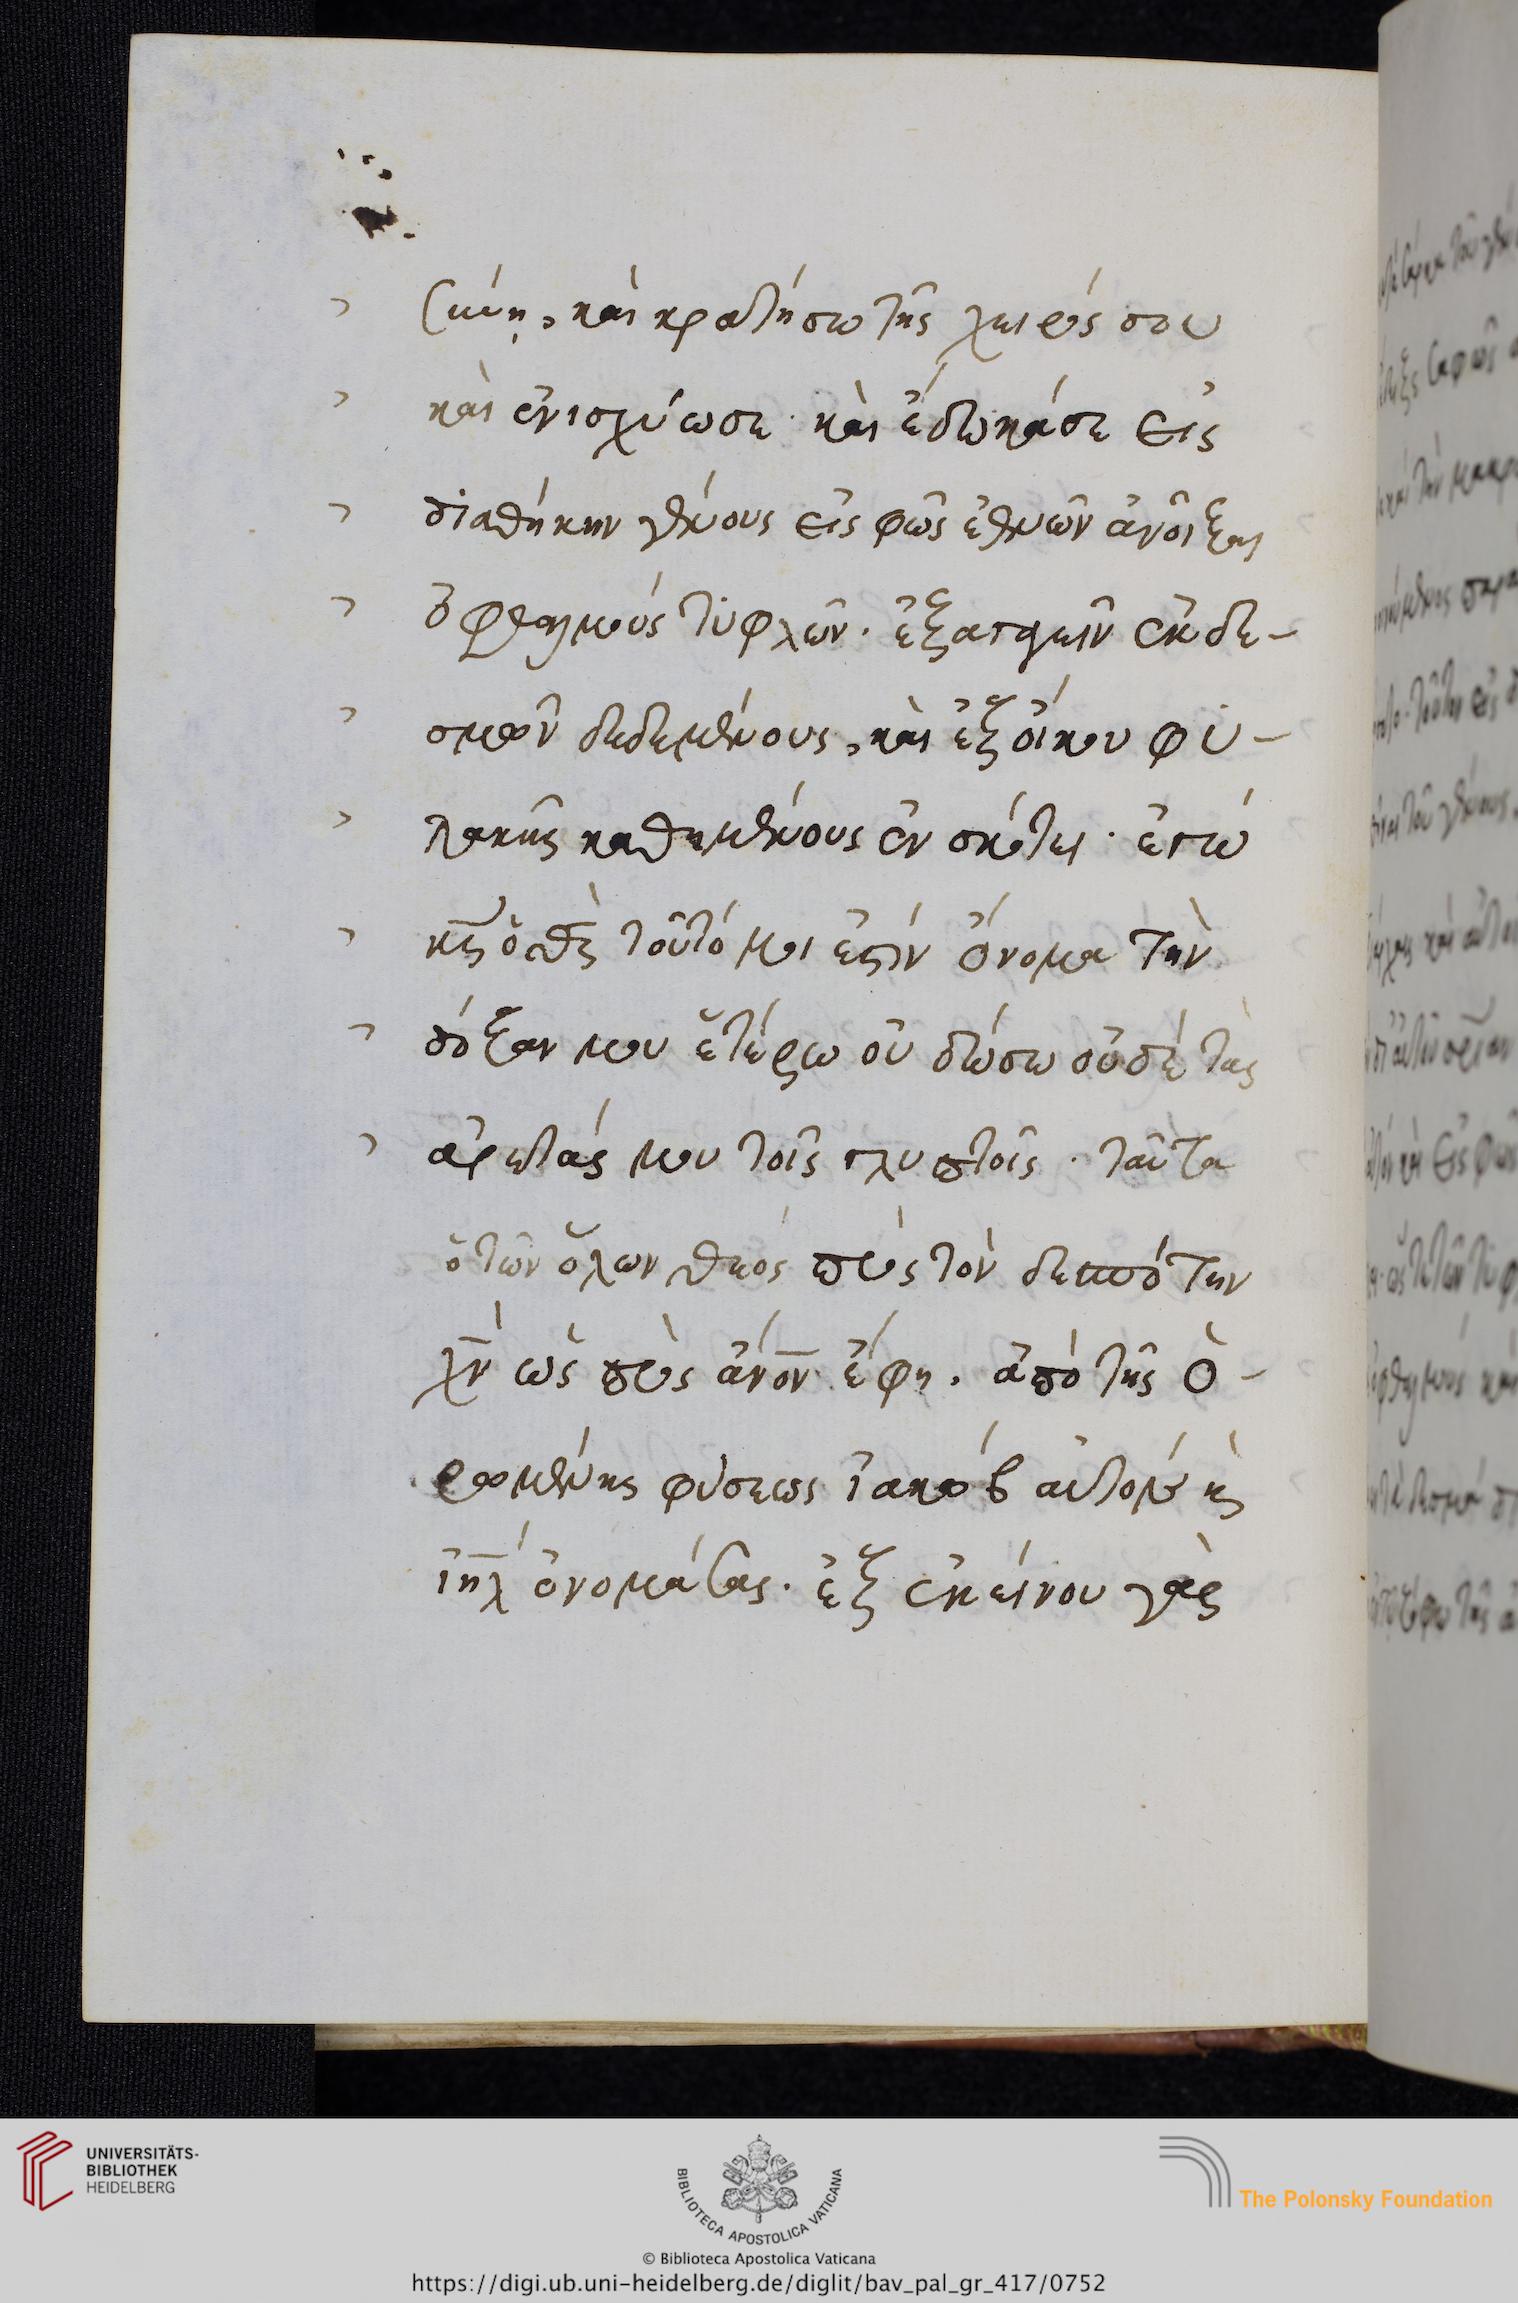 σύνῃ, καὶ κρατήσω τῆς χειρός σου
καὶ ἐνισχύσω σε· καὶ ἔδωκά σε εἰς
διαθήκην γένους εἰς φῶς ἐθνῶν ἀνοῖξαι
ὀφθαλμοὺς τυφλῶν· ἐξαγαγεῖν ἐκ δε-
σμῶν δεδεμένους, καὶ ἐξ οἴκου φυ-
λακῆς καθημένους ἐν σκότει· ἐγώ
κς ὁ θς τοῦτό μοι ἐστὶν ὄνομα τὴν
δόξαν μου ἑτέρω οὐ δώσω οὐδὲ τὰς
ἀρετάς μου τοῖς γλυπτοῖς· ταῦτα
ὁ τῶν ὅλων θεός πρὸς τὸν δεσπότην
χν ὡς πρὸς ανον ἔφη. ἀπὸ τῆς ὁ-
ρωμένης φύσεως ἰακώβ αὐτὸν κὶ
ιηλ ὀνομάσας· ἐξ ἐκείνου γὰρ
UNIVERSITÄTS-
BIBLIOTHEK
HEIDELBERG
BIBLIOTECA APOSTOLICA VATICANA
The Polonsky Foundation
© Biblioteca Apostolica Vaticana
https://digi.ub.uni-heidelberg.de/diglit/bav_pal_gr_417/0752